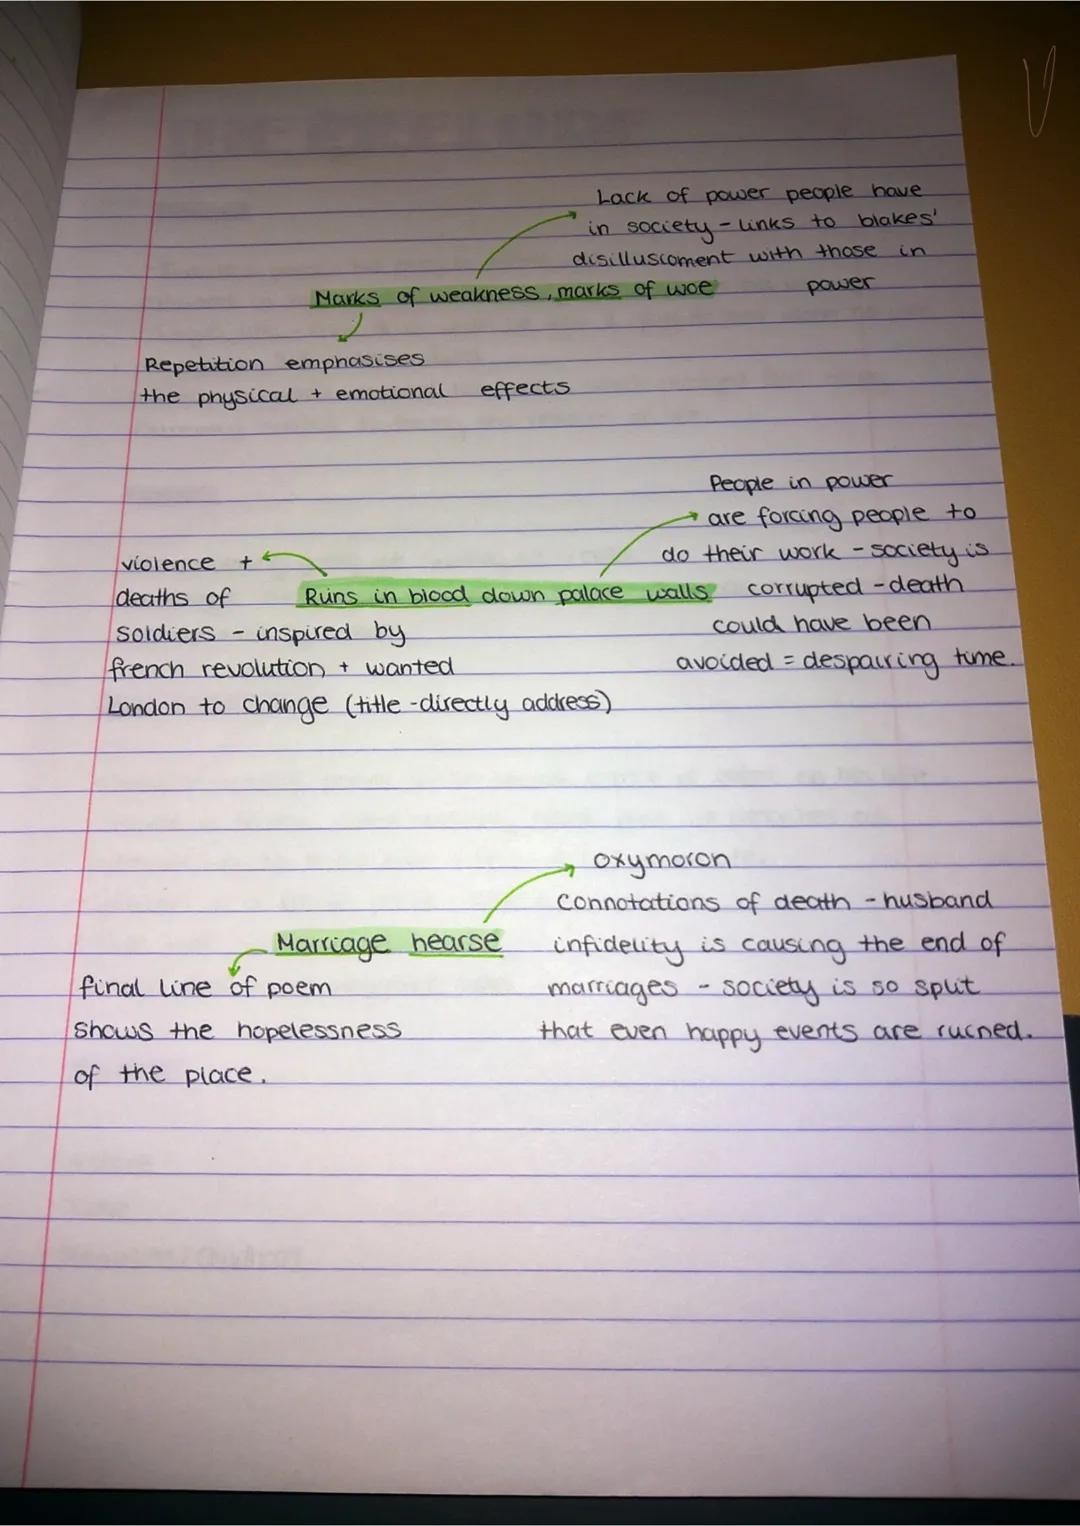 Lack of power people have
in society - links to blakes'
disilluscoment with those in
power
Marks of weakness, marks of woe
Repetition emphasises
the physical + emotional effects
People in power
are forcing people to
do their work - society is
corrupted - death
could have been
avoided = despairing time.
Runs in blood down palace walls
violence +
deaths of
soldiers - inspired by
french revolution + wanted
London to change (title - directly address)
oxymoron
connotations of death - husband
infidelity is causing the end of
marriages - society is so split
that even happy events are ruined.
Marriage hearse
final line of poem
shows the hopelessness
of the place.